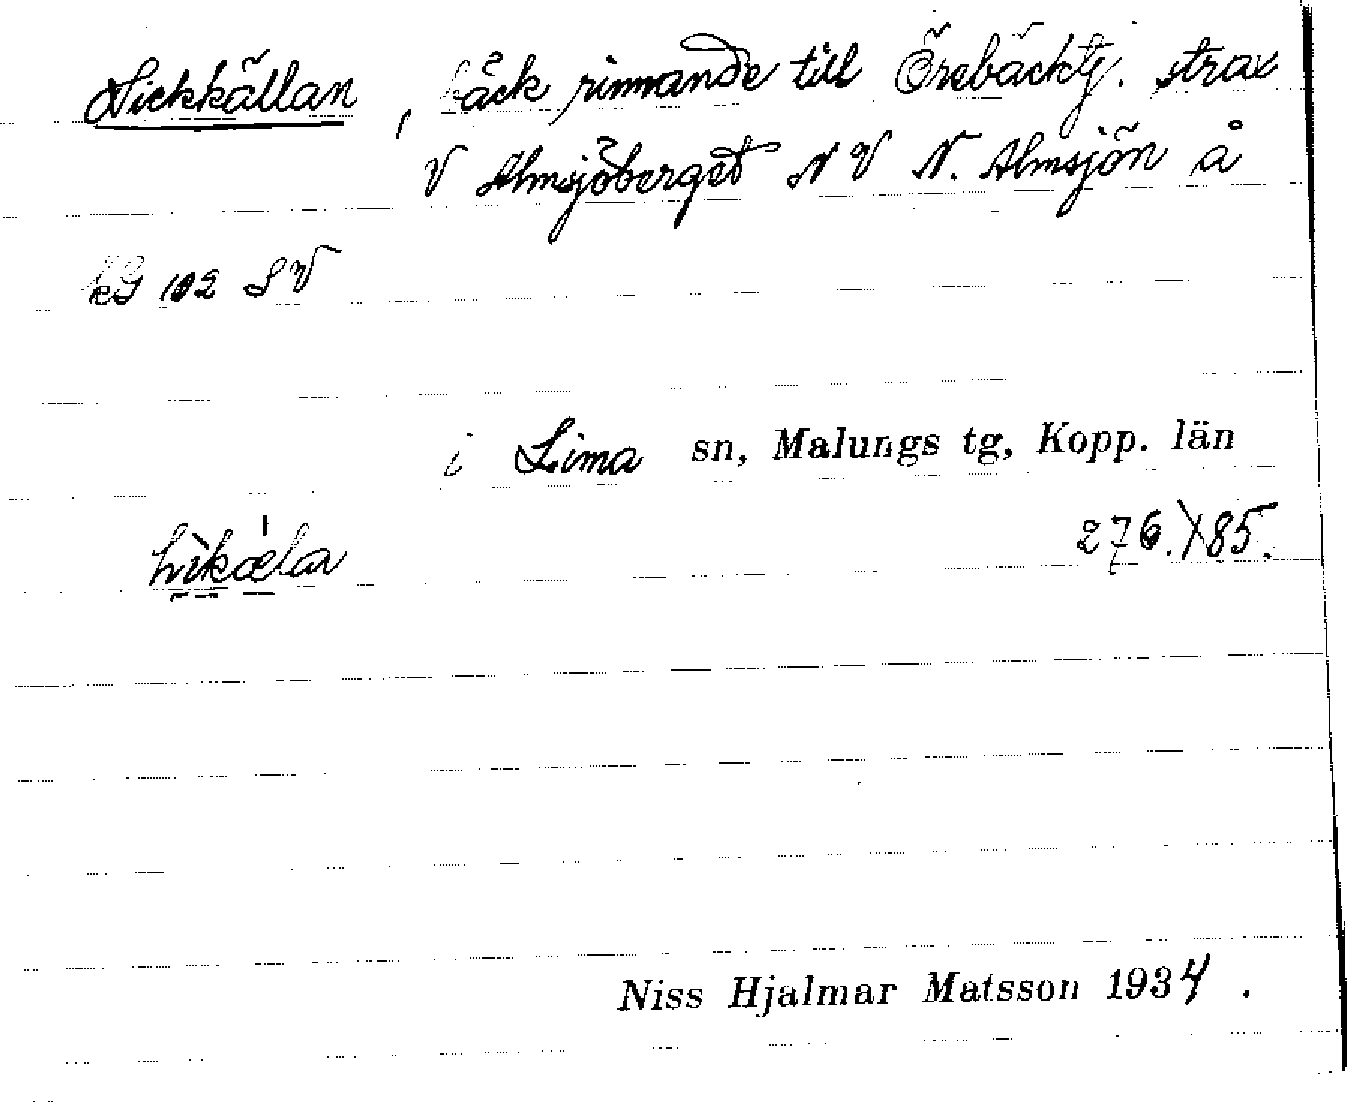 Lickkällan, bäck rinnande till Örebäcktj. strax
V Almsjöberget N V N. Almsjön å
kG 102 SV
i Lima sn, Malungs tg, Kopp. län
276. 85.
Niss Hjalmar Matsson 1934.